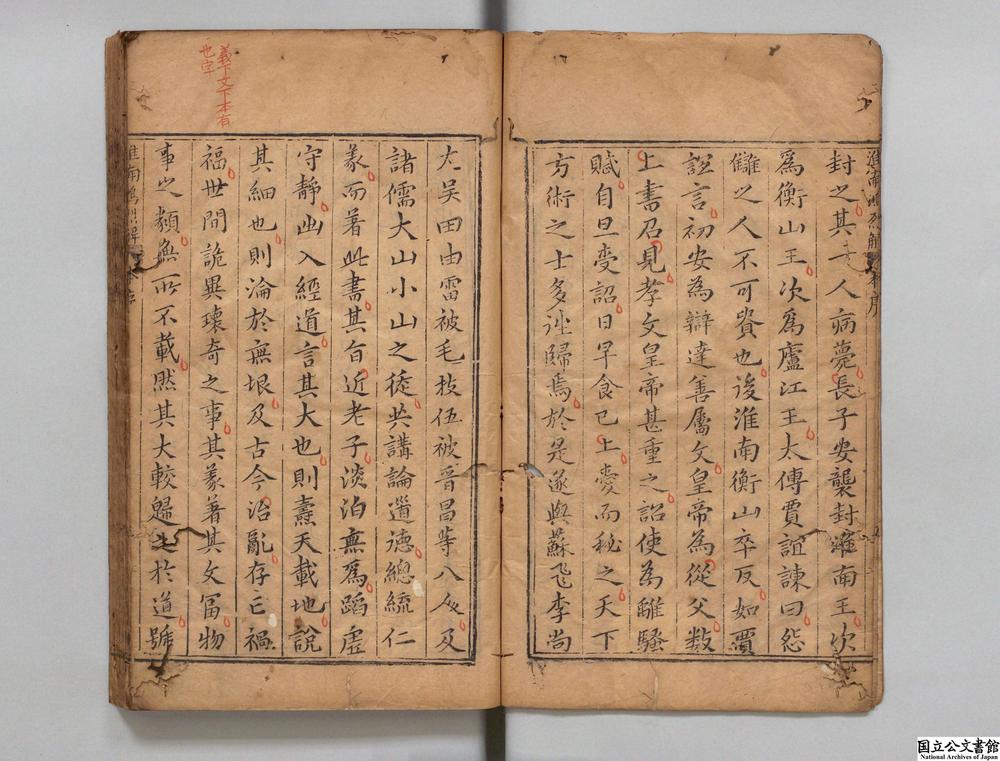 淮南鴻烈解 序
封之其一人病薨長子安襲封淮南王次
為衡山王次為廬江王太傅賈誼諫曰怨
讎之人不可貴也後淮南衡山卒反如賈
誼言初安為辯達善屬文皇帝為從父數
上書召見孝文皇帝甚重之詔使為離騷
賦自旦受詔日早食已上愛而秘之天下
方術之士多往歸焉於是遂與蘇飛李尚
左吴田由雷被毛技伍被晉昌等八人及
諸儒大山小山之徒共講論道德總統仁
義而著此書其旨近老子淡泊無為蹈虛
守靜出入經道言其大也則燾天載地說
其細也則淪於無垠及古今治亂存亡禍
福世間詭異瓌奇之事其義著其文冨物
事之類無所不載然其大較歸之於道號
淮南鴻烈解 序
義下文下本有
也字
国立公文書館
National Archives of Japan